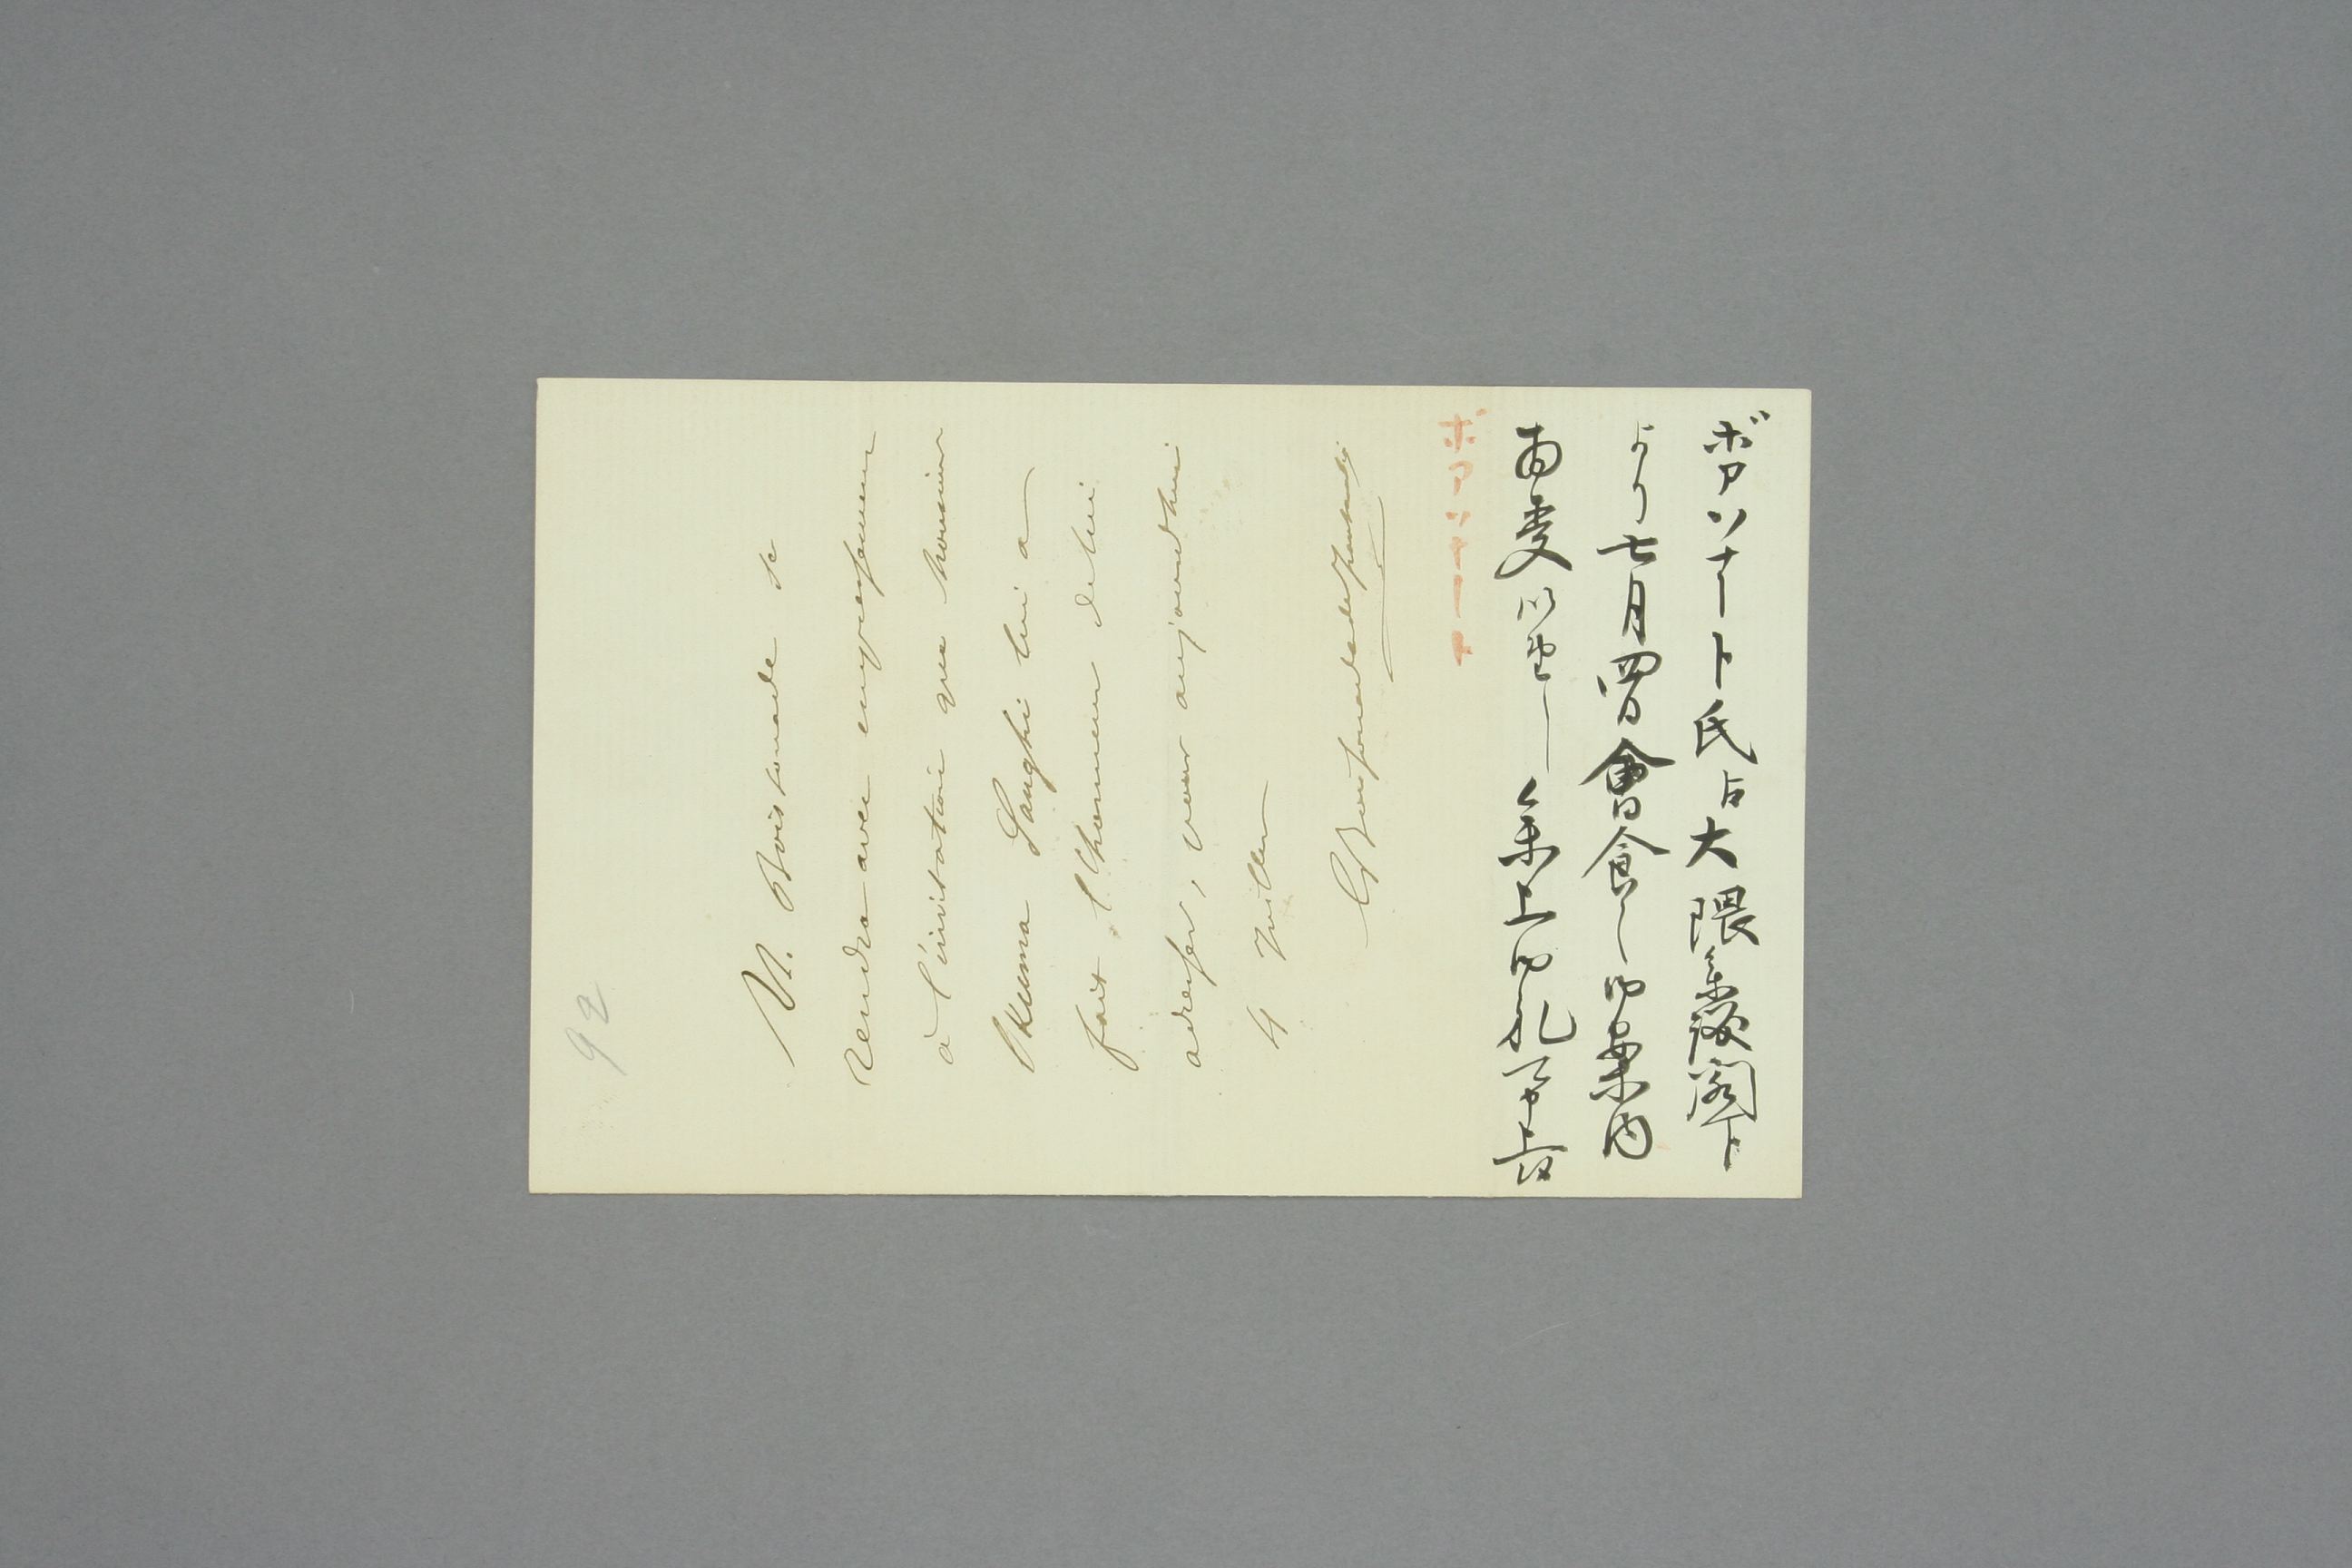 M. Boissonade se
rendra avec empressement
à l'invitation que monsieur
Okuma Sanghi lui a
fait l'honneur de lui
adresser, pour aujourd'hui
4 Juillet
GBoissonade
ボアソナード氏ゟ大隈参議閣下
より七月四日會食之御案内
相受候ニ付参上御礼可申上段
ボアソナード
92